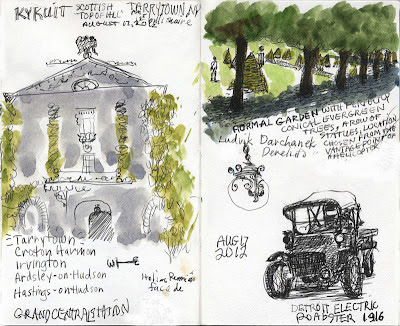 KYKUIT
SCOTTISH
"TOP OF HILL"
TARRYTOWN, NY
AUGUST 17, 2012
Tarrytown
Croton Harmon
Irvington
Ardsley-on-Hudson
Hastings-on-Hudson
GRAND CENTRAL STATION
facade
FORMAL GARDEN WITH
CONICAL EVERGREEN
TREES, A ROW OF
STATUES, LOCATION
CHOSEN FROM THE
VANTAGE POINT OF
A HELICOPTER
AUG 17
2012
DETROIT ELECTRIC
ROADSTER 1916